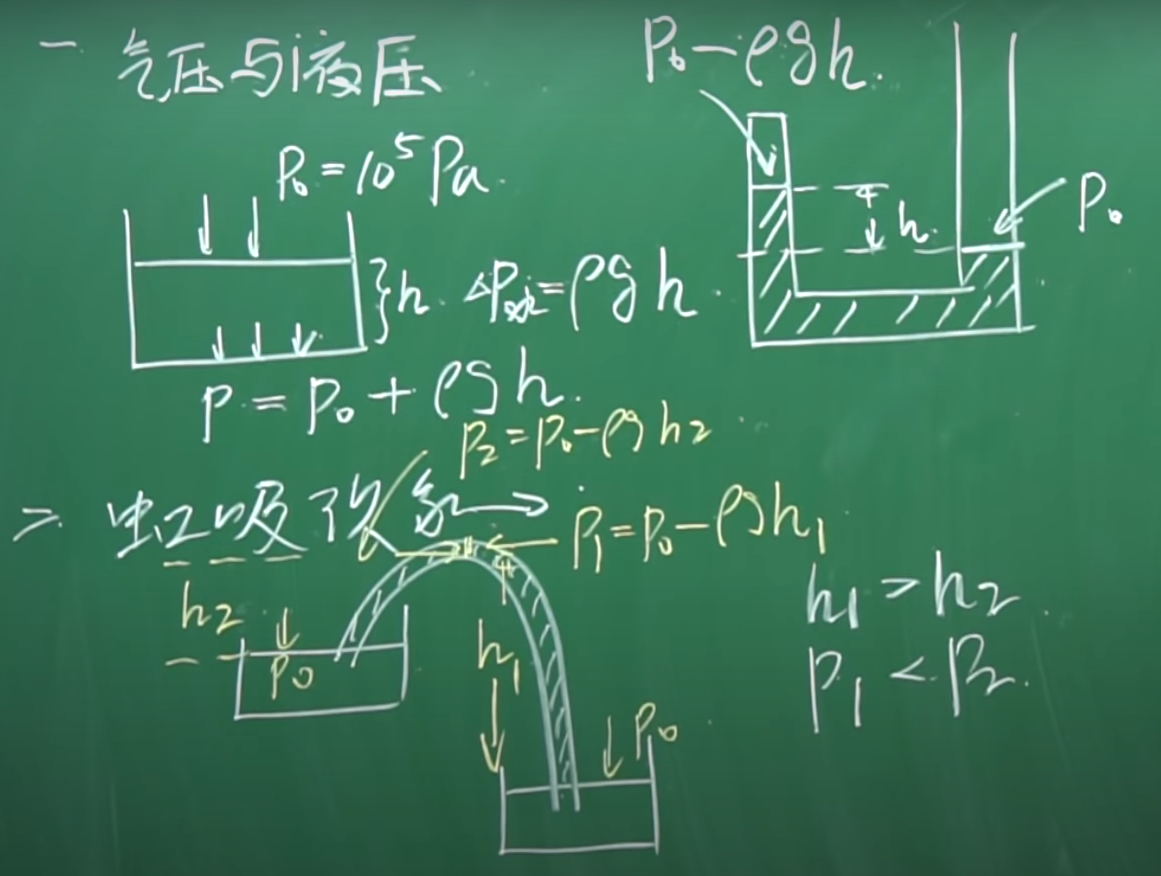 一 气压与液压
P₀=10⁵Pa.
h ΔP水=ρgh.
P=P₀+ρgh.
P₀-ρgh.
h.
P₀
二 虹吸现象
P₂=P₀-ρgh₂
P₁=P₀-ρgh₁
h₂
P₀
h₁
P₀
h₁>h₂.
P₁<P₂.